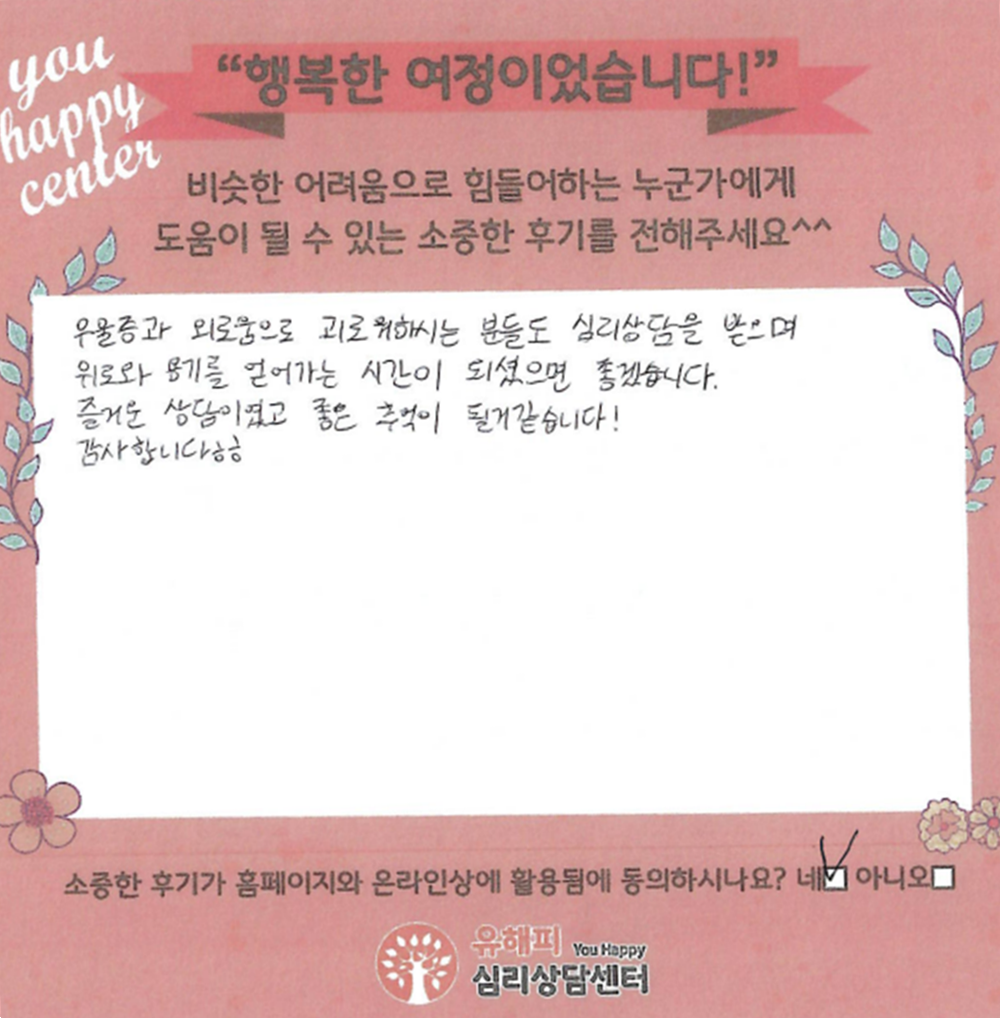 you
happy
center
“행복한 여정이었습니다!”
비슷한 어려움으로 힘들어하는 누군가에게
도움이 될 수 있는 소중한 후기를 전해주세요^^
우울증과 외로움으로 괴로워하시는 분들도 심리상담을 받으며
위로와 용기를 얻어가는 시간이 되셨으면 좋겠습니다.
즐거운 상담이였고 좋은 추억이 될거같습니다!
감사합니다ㅎㅎ
소중한 후기가 홈페이지와 온라인상에 활용됨에 동의하시나요? 네 아니오
유해피 You Happy
심리상담센터